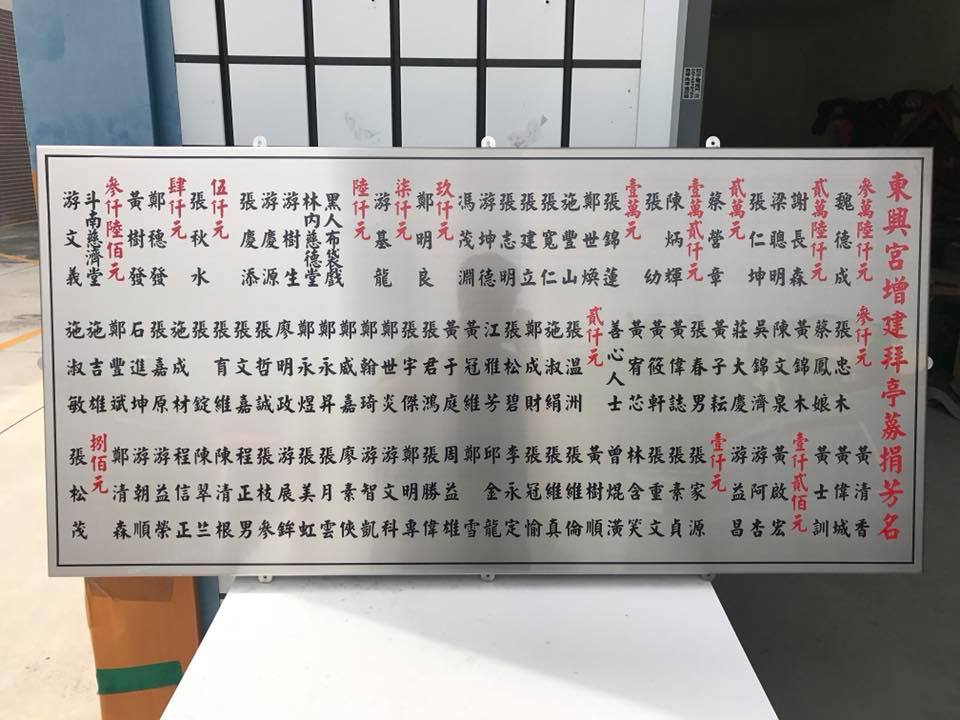 東興宮增建拜亭募捐芳名
參萬陸仟元
魏德成
貳萬陸仟元
謝長森
梁聰明
張仁坤
貳萬元
蔡營章
壹萬貳仟元
陳炳輝
張幼
壹萬元
張錦蓮
鄭世煥
施豐山
張寬仁
張建立
張志明
游坤德
馮茂淵
玖仟元
鄭明良
柒仟元
游基龍
陸仟元
黑人布袋戲
林內慈德堂
游樹生
游慶源
張慶添
伍仟元
張秋水
肆仟元
鄭穗發
黃樹發
參仟陸佰元
斗南慈濟堂
游文義
參仟元
張忠木
蔡鳳娘
黃錦木
陳文泉
吳錦濟
莊大慶
黃子耘
張春男
黃偉誌
黃筱軒
黃宥芯
善心人士
貳仟元
張溫洲
施淑絹
鄭成財
張松碧
江雅芳
黃冠維
黃于庭
黃君鴻
張宇傑
張世炎
鄭翰琦
鄭威嘉
鄭永昇
鄭永煜
廖明政
張哲誠
張文嘉
張育維
張錠
施成材
張嘉原
石進坤
鄭豐斌
施吉雄
施淑敏
黃清香
黃偉城
黃士訓
壹仟貳佰元
黃啟宏
游阿杏
游益昌
壹仟元
張家源
張素貞
張重文
林含笑
曾焜潢
黃樹順
張維倫
張維真
張冠愉
李永定
邱金龍
鄭雪
周益雄
張勝偉
鄭明專
游文科
游智凱
廖素俠
張月雲
張美虹
游展鉾
張枝參
程正男
陳清根
陳翠兰
程信正
游益榮
游朝順
鄭清森
捌佰元
張松茂